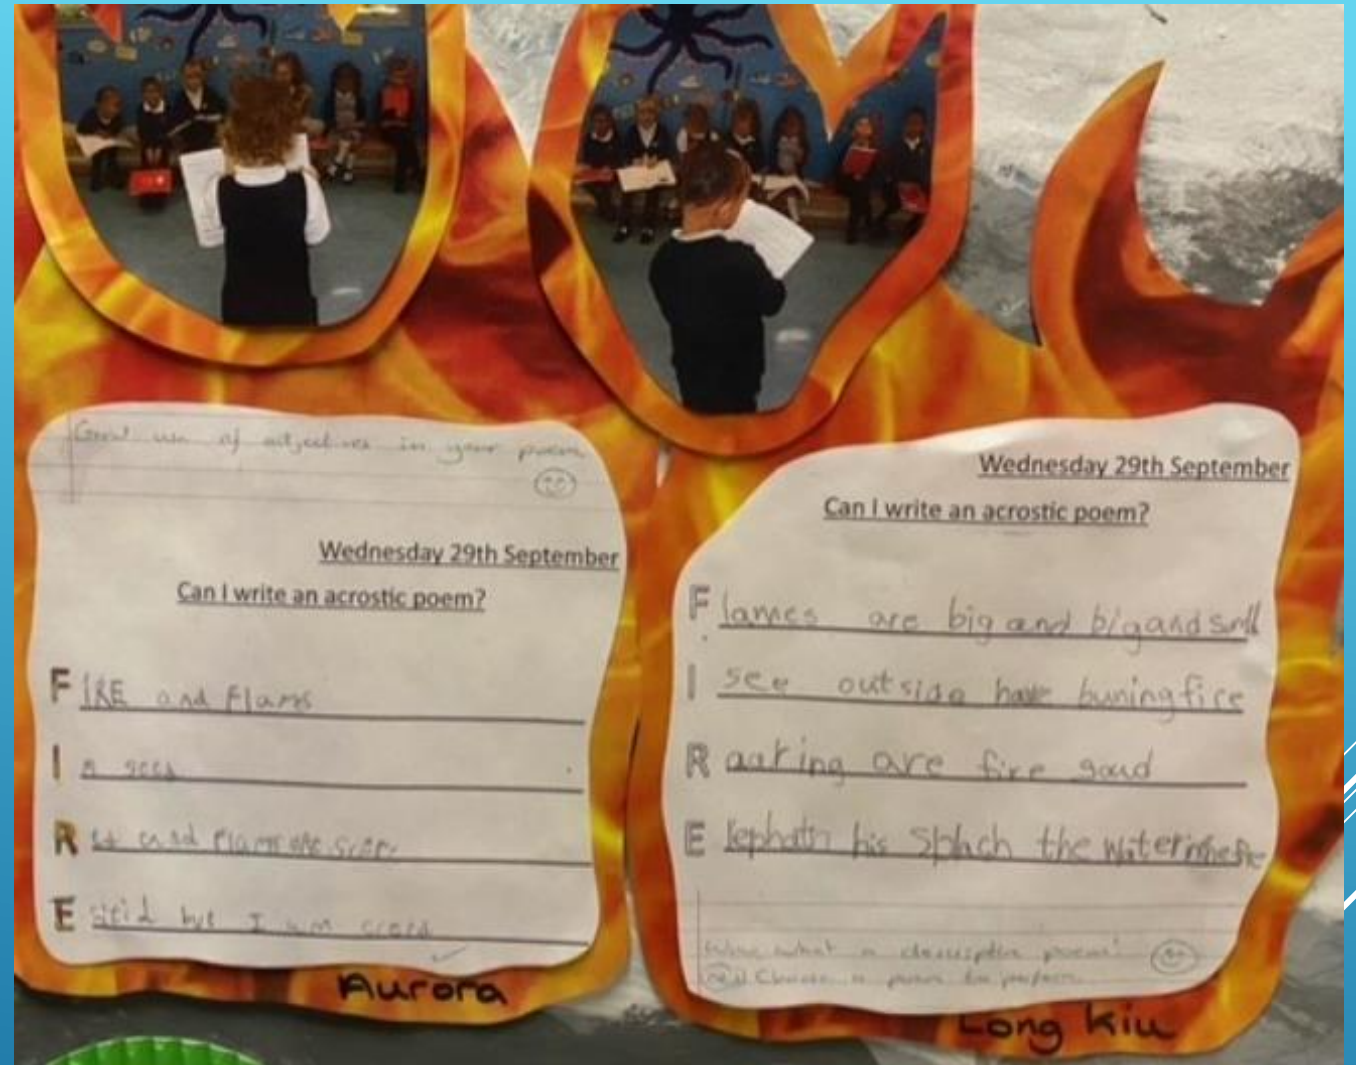 Good use of adjectives in your poem
Wednesday 29th September
Can I write an acrostic poem?
FIRE and Flams
I
R and Flams are
E but I am
Aurora
Wednesday 29th September
Can I write an acrostic poem?
Flames are big and big and smll
I see outside have buning fire
Raaring are fire goud
Elephatn his Splach the water in the fie
Wow what a descriptive poem!
Choose a poem to perform
Long Kiu